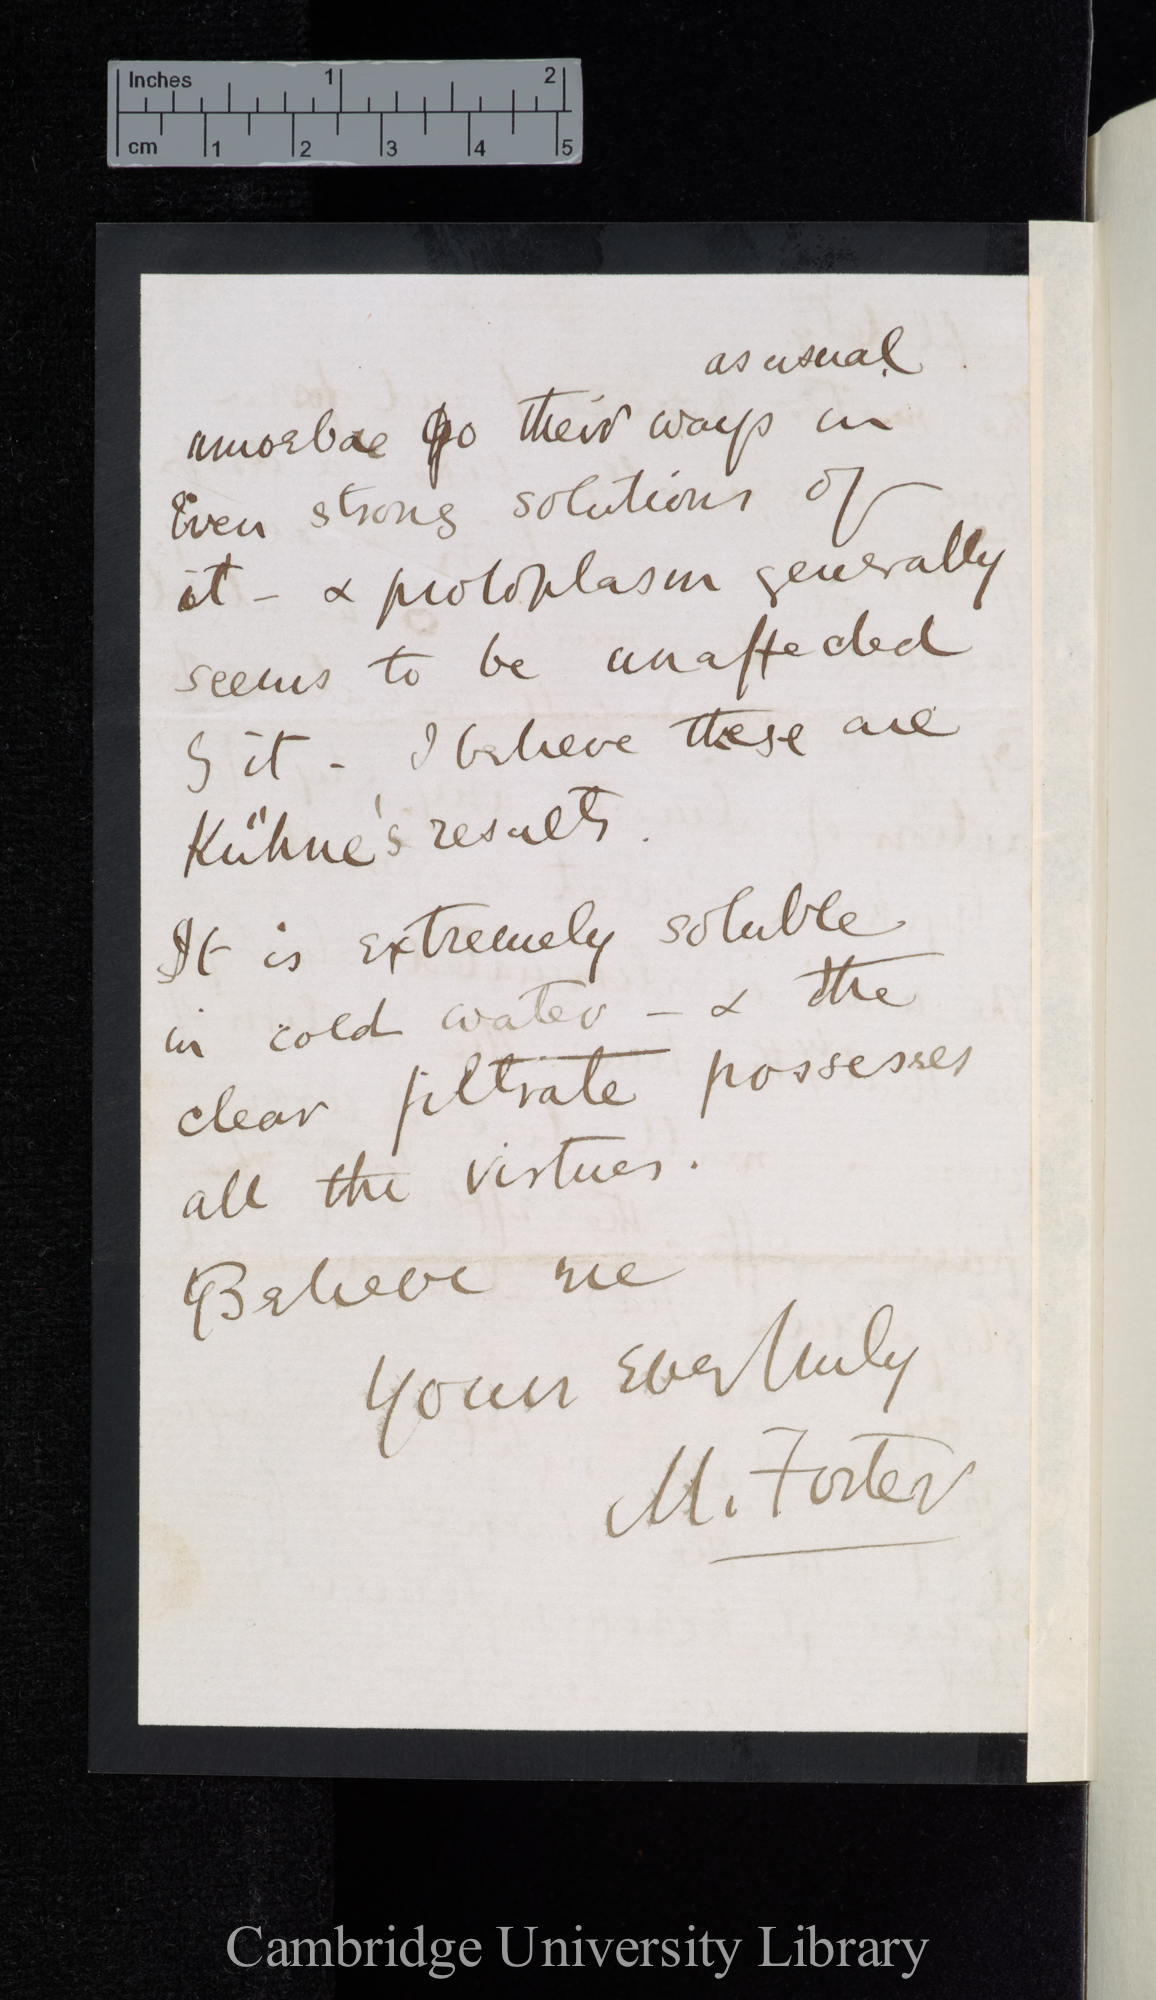 Inches 1 2
cm 1 2 3 4 5
as usual
amoebae go their ways in
even strong solutions of
it - & protoplasm generally
seems to be unaffected
by it - I believe these are
Kühne's results.
It is extremely soluble
in cold water - & the
clear filtrate possesses
all the virtues.
Believe me
Yours ever truly
M. Foster
Cambridge University Library